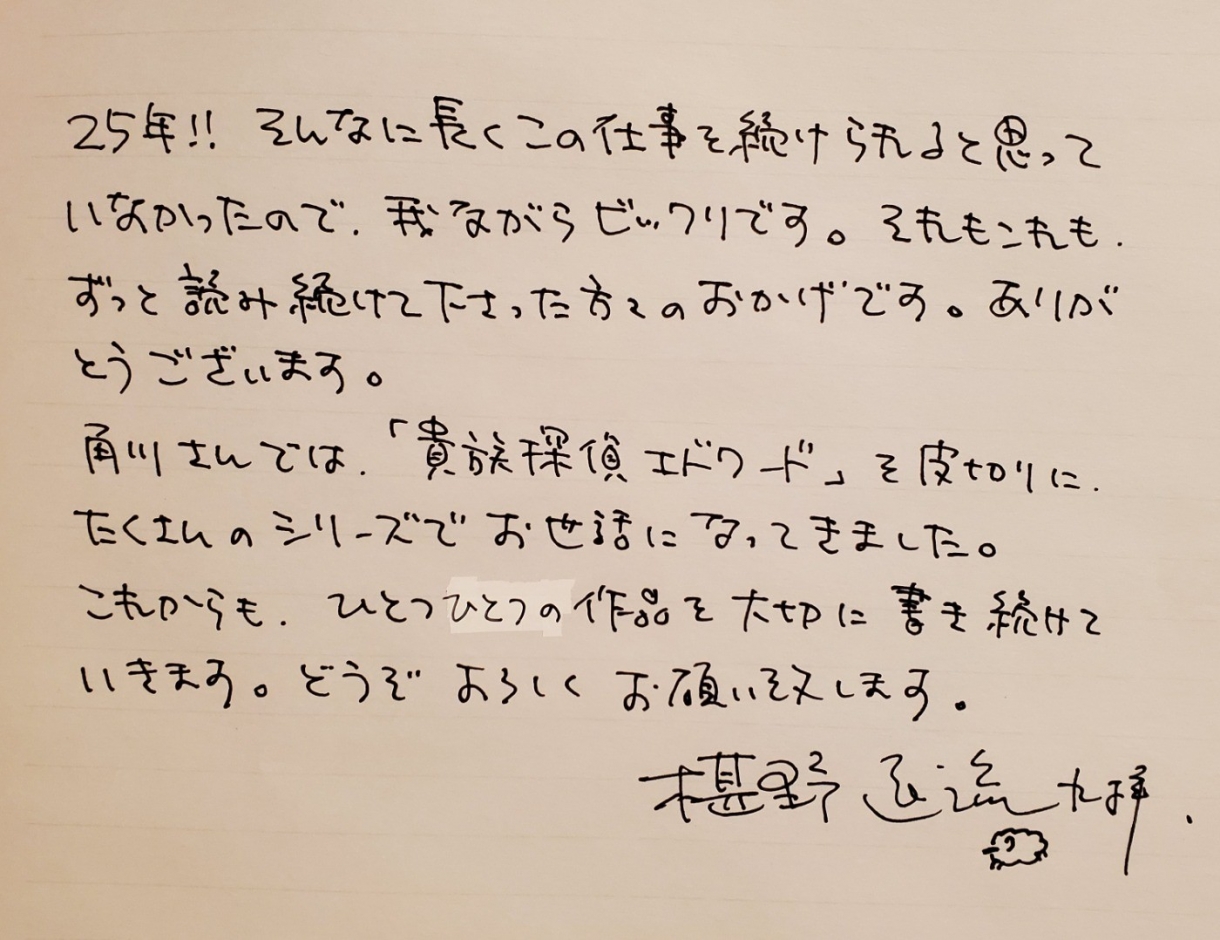 25年!! そんなに長くこの仕事を続けられると思って
いなかったので、我ながらビックリです。それもこれも、
ずっと読み続けて下さった方々のおかげです。ありが
とうございます。
角川さんでは、「貴族探偵エドワード」を皮切りに、
たくさんのシリーズでお世話になってきました。
これからも、ひとつひとつの作品を大切に書き続けて
いきます。どうぞよろしくお願い致します。
椹野道流 九拝.